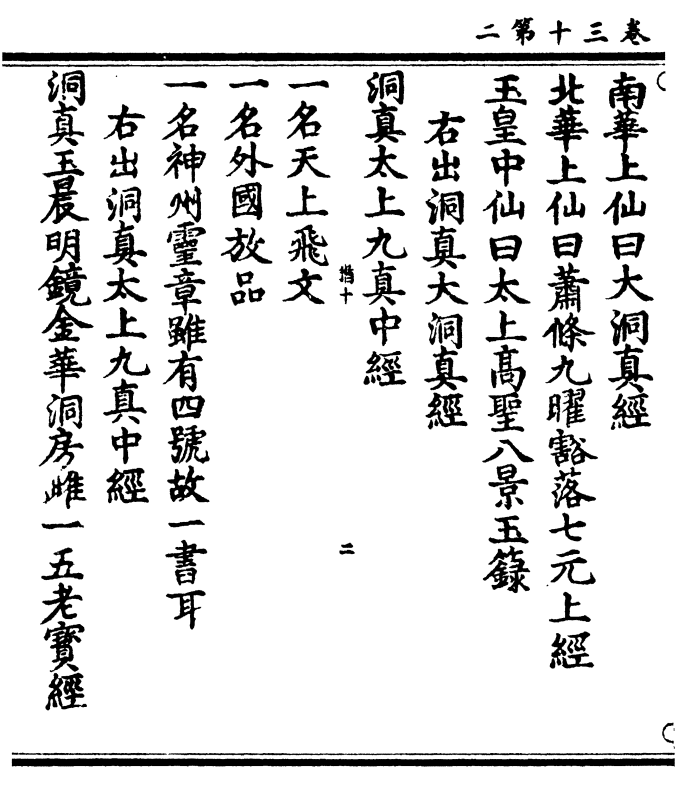 卷三十第二
南華上仙曰大洞真經
北華上仙曰蕭條九曜豁落七元上經
玉皇中仙曰太上高聖八景玉籙
右出洞真大洞真經
洞真太上九真中經
二
一名天上飛文
一名外國放品
一名神州靈章雖有四號故一書耳
右出洞真太上九真中經
洞真玉晨明鏡金華洞房雌一五老寶經